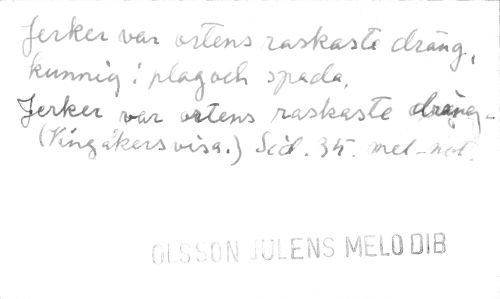 Jerker var ortens raskaste dräng,
kunnig i plog och spada,
Jerker var ortens raskaste dräng-
(Vingåkersvisa.) Sid. 35. mel-not.
OLSSON JULENS MELODIB